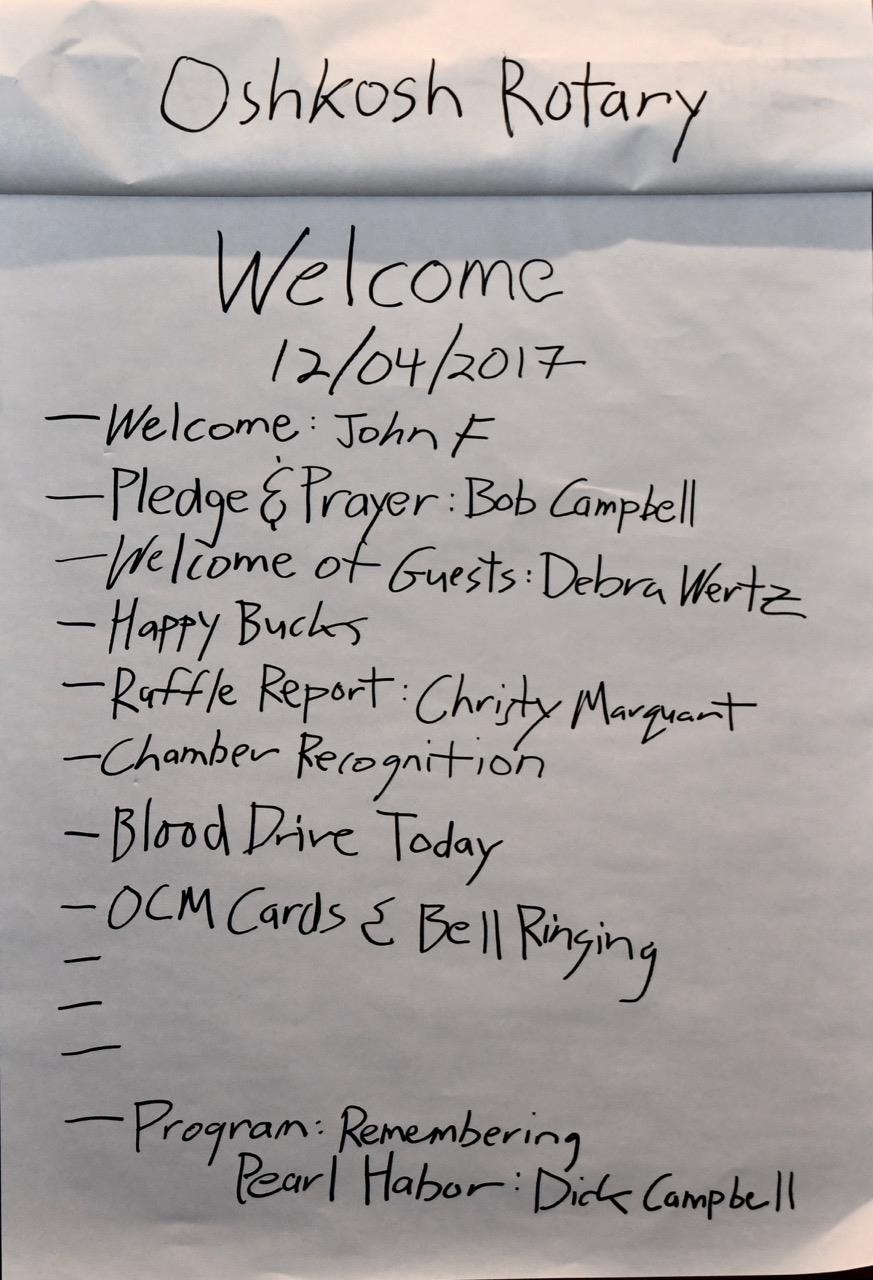 Oshkosh Rotary
Welcome
12/04/2017
— Welcome: John F
— Pledge & Prayer: Bob Campbell
— Welcome of Guests: Debra Wertz
— Happy Bucks
— Raffle Report: Christy Marquant
— Chamber Recognition
— Blood Drive Today
— OCM Cards & Bell Ringing
—
—
—
— Program: Remembering
Pearl Habor: Dick Campbell